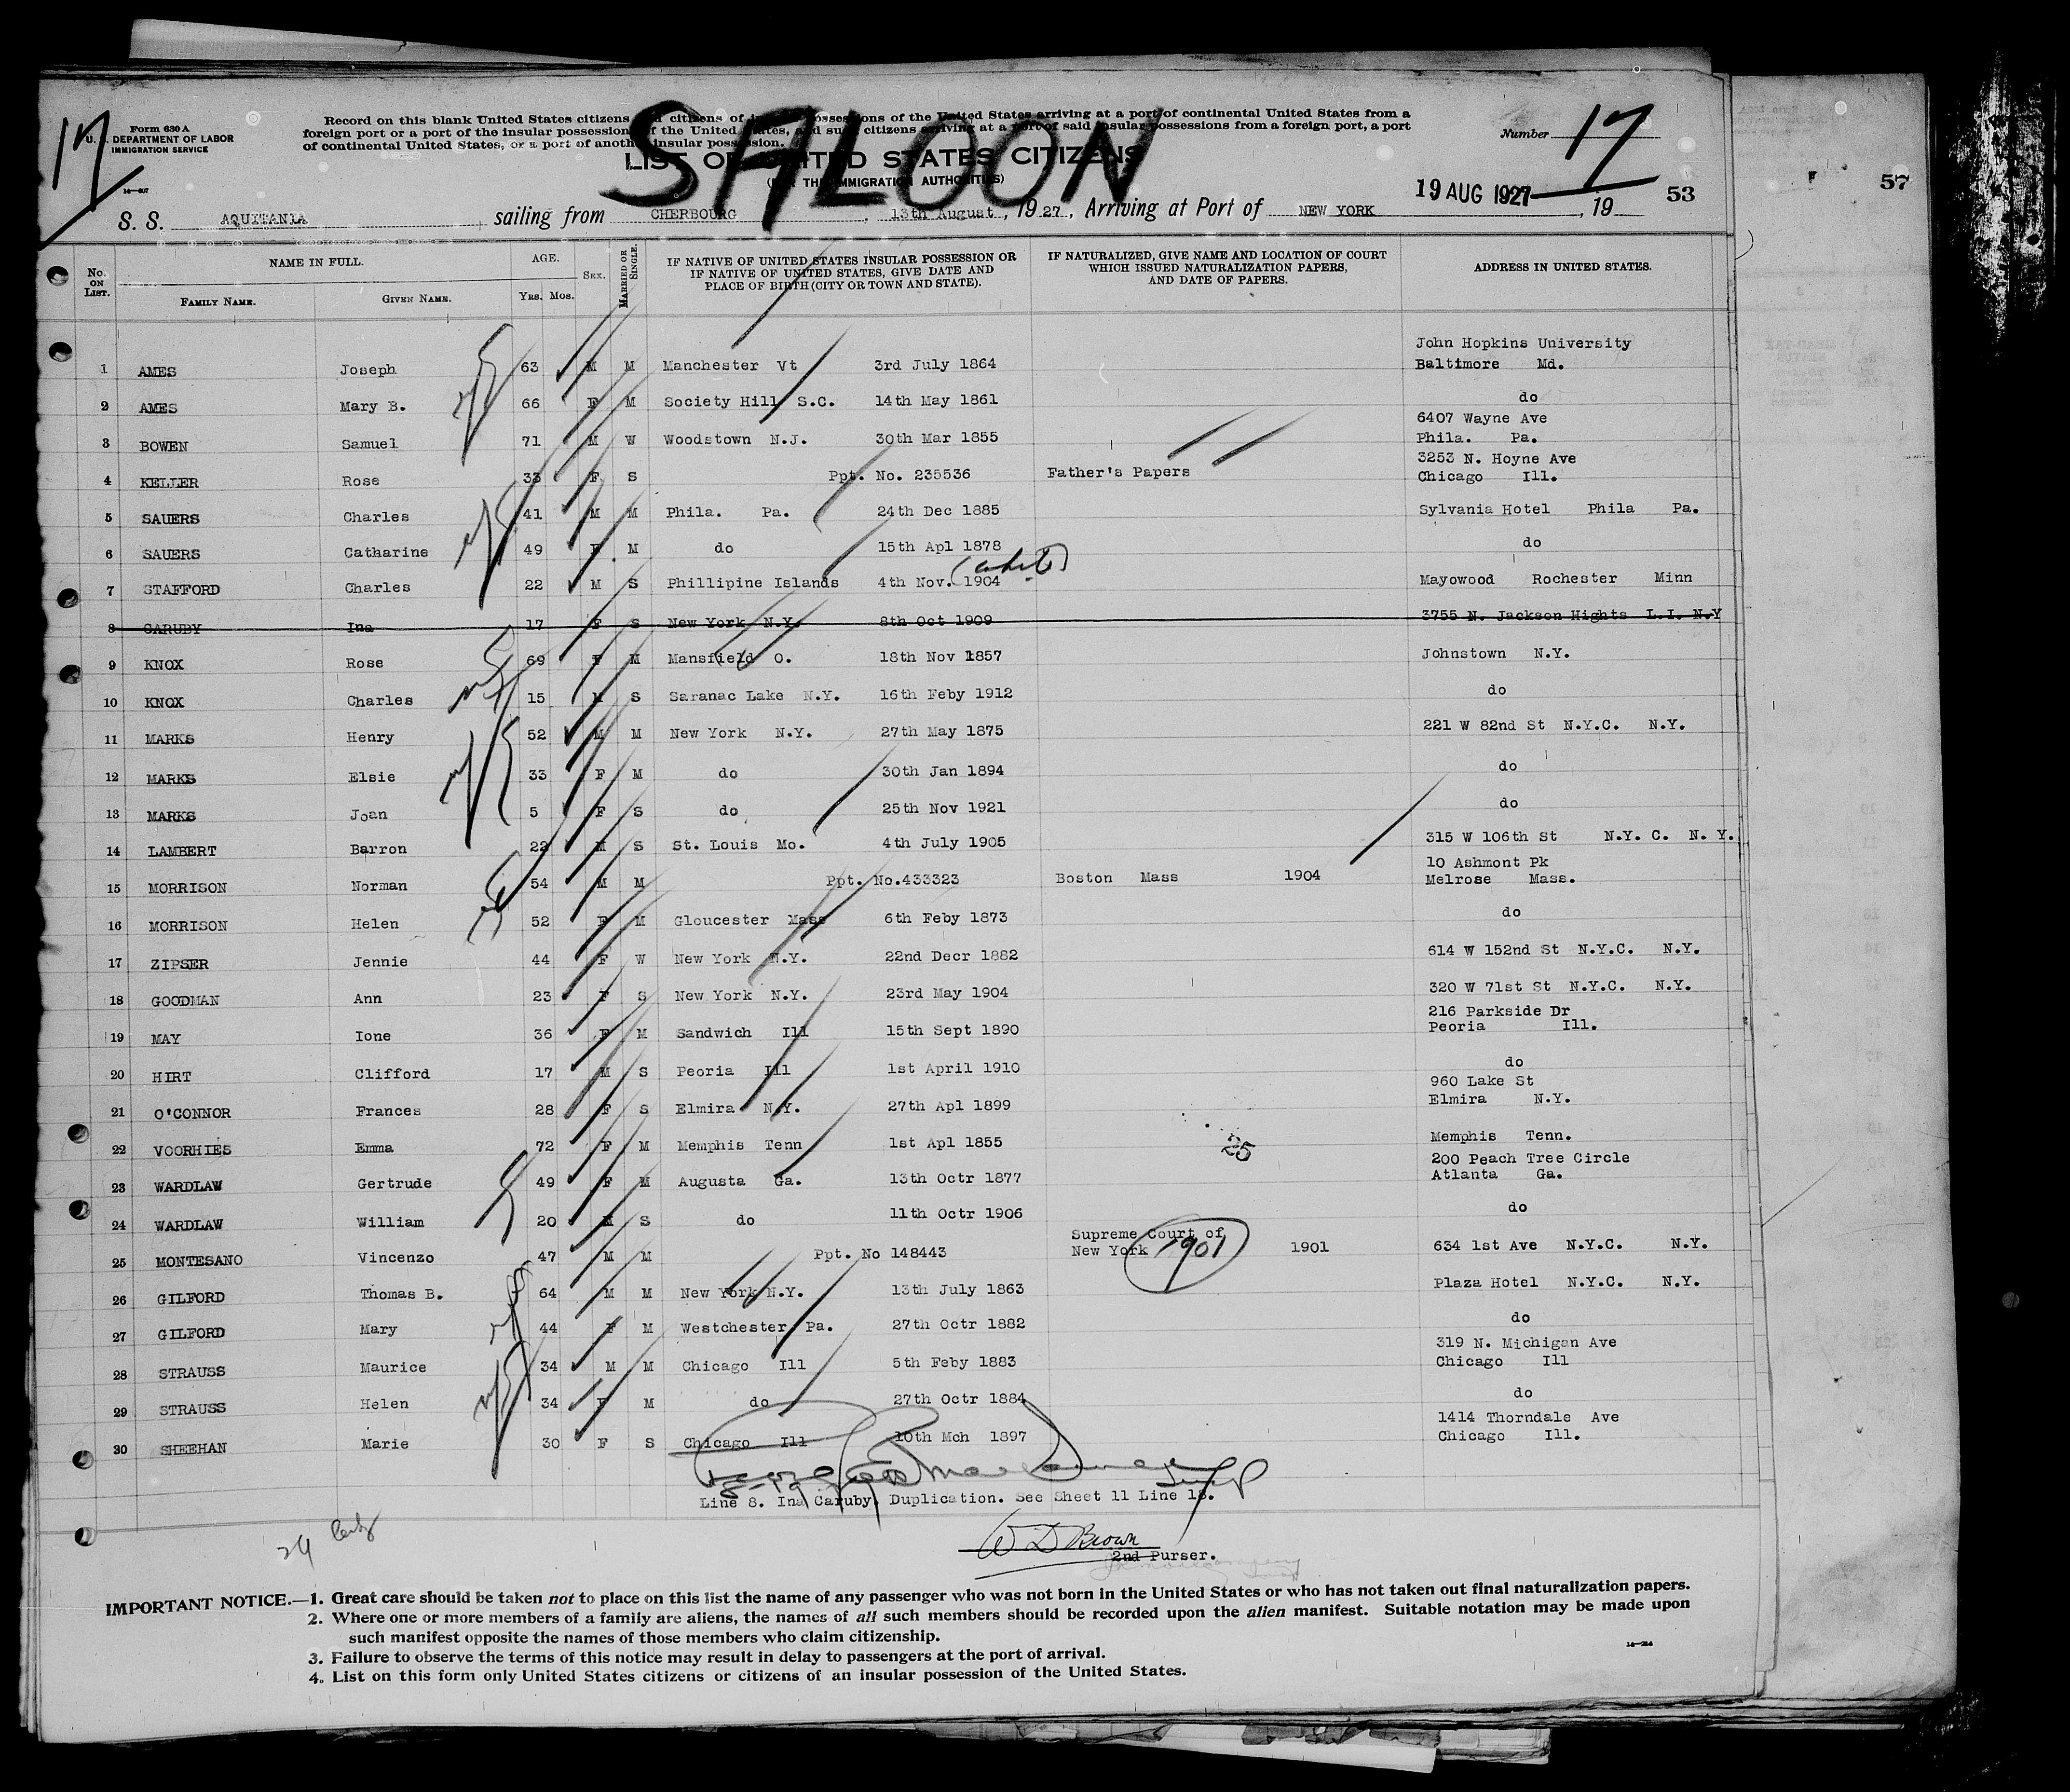 SALOON
17
Form 630 A
U. S. DEPARTMENT OF LABOR
IMMIGRATION SERVICE
14—607
Record on this blank United States citizens and citizens of insular possessions of the United States arriving at a port of continental United States from a
foreign port or a port of the insular possessions of the United States, and such citizens arriving at a port of said insular possessions from a foreign port, a port
of continental United States, or a port of another insular possession.
LIST OF UNITED STATES CITIZENS
(FOR THE IMMIGRATION AUTHORITIES)
Number 17
19 AUG 1927
53
57
S. S. AQUITANIA sailing from CHERBOURG, 13th August, 1927, Arriving at Port of NEW YORK, 19
No. ON LIST. NAME IN FULL. FAMILY NAME. GIVEN NAME. AGE. YRS. MOS. SEX. MARRIED OR SINGLE. IF NATIVE OF UNITED STATES INSULAR POSSESSION OR IF NATIVE OF UNITED STATES, GIVE DATE AND PLACE OF BIRTH (CITY OR TOWN AND STATE). IF NATURALIZED, GIVE NAME AND LOCATION OF COURT WHICH ISSUED NATURALIZATION PAPERS, AND DATE OF PAPERS. ADDRESS IN UNITED STATES.
John Hopkins University
1 AMES Joseph 63 M M Manchester Vt 3rd July 1864 Baltimore Md.
2 AMES Mary B. 66 F M Society Hill S.C. 14th May 1861 do
6407 Wayne Ave
3 BOWEN Samuel 71 M W Woodstown N.J. 30th Mar 1855 Phila. Pa.
3253 N. Hoyne Ave
4 KELLER Rose 33 F S Ppt. No. 235536 Father's Papers Chicago Ill.
5 SAUERS Charles 41 M M Phila. Pa. 24th Dec 1885 Sylvania Hotel Phila Pa.
6 SAUERS Catharine 49 F M do 15th Apl 1878 do
7 STAFFORD Charles 22 M S Phillipine Islands 4th Nov. 1904 Mayowood Rochester Minn
8 CARUBY Ina 17 F S New York N.Y. 8th Oct 1909 3755 N. Jackson Hights L.I. N.Y
9 KNOX Rose 69 F M Mansfield O. 18th Nov 1857 Johnstown N.Y.
10 KNOX Charles 15 M S Saranac Lake N.Y. 16th Feby 1912 do
11 MARKS Henry 52 M M New York N.Y. 27th May 1875 221 W 82nd St N.Y.C. N.Y.
12 MARKS Elsie 33 F M do 30th Jan 1894 do
13 MARKS Joan 5 F S do 25th Nov 1921 do
14 LAMBERT Barron 22 M S St. Louis Mo. 4th July 1905 315 W 106th St N.Y. C. N. Y.
10 Ashmont Pk
15 MORRISON Norman 54 M M Ppt. No.433323 Boston Mass 1904 Melrose Mass.
16 MORRISON Helen 52 F M Gloucester Mass 6th Feby 1873 do
17 ZIPSER Jennie 44 F W New York N.Y. 22nd Decr 1882 614 W 152nd St N.Y.C. N.Y.
18 GOODMAN Ann 23 F S New York N.Y. 23rd May 1904 320 W 71st St N.Y.C. N.Y.
216 Parkside Dr
19 MAY Ione 36 F M Sandwich Ill 15th Sept 1890 Peoria Ill.
20 HIRT Clifford 17 M S Peoria Ill 1st April 1910 do
960 Lake St
21 O'CONNOR Frances 28 F S Elmira N.Y. 27th Apl 1899 Elmira N.Y.
22 VOORHIES Emma 72 F M Memphis Tenn 1st Apl 1855 Memphis Tenn.
25
200 Peach Tree Circle
23 WARDLAW Gertrude 49 F M Augusta Ga. 13th Octr 1877 Atlanta Ga.
24 WARDLAW William 20 M S do 11th Octr 1906 do
Supreme Court of
25 MONTESANO Vincenzo 47 M M Ppt. No 148443 New York 1901 1901 634 1st Ave N.Y.C. N.Y.
26 GILFORD Thomas B. 64 M M New York N.Y. 13th July 1863 Plaza Hotel N.Y.C. N.Y.
27 GILFORD Mary 44 F M Westchester Pa. 27th Octr 1882 do
319 N. Michigan Ave
28 STRAUSS Maurice 34 M M Chicago Ill 5th Feby 1883 Chicago Ill
29 STRAUSS Helen 34 F M do 27th Octr 1884 do
1414 Thorndale Ave
30 SHEEHAN Marie 30 F S Chicago Ill 10th Mch 1897 Chicago Ill.
Line 8. Ina Caruby. Duplication. See Sheet 11 Line 18.
W D Brown
2nd Purser.
IMPORTANT NOTICE.—1. Great care should be taken not to place on this list the name of any passenger who was not born in the United States or who has not taken out final naturalization papers.
2. Where one or more members of a family are aliens, the names of all such members should be recorded upon the alien manifest. Suitable notation may be made upon
such manifest opposite the names of those members who claim citizenship.
3. Failure to observe the terms of this notice may result in delay to passengers at the port of arrival.
4. List on this form only United States citizens or citizens of an insular possession of the United States.